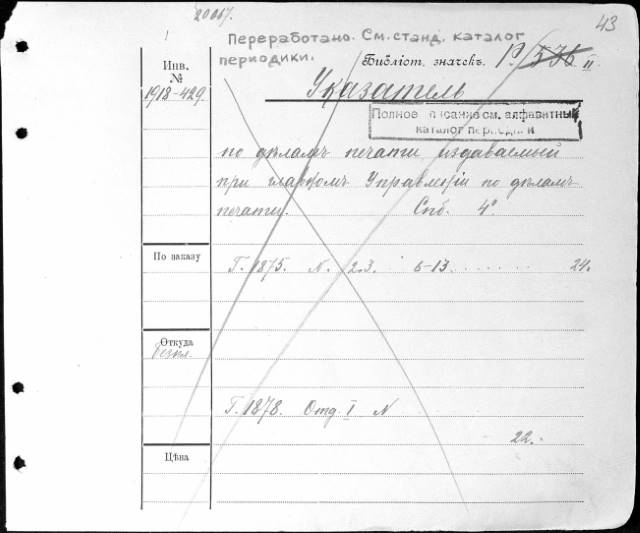 20 067.
43
Переработано. См. станд. каталог
периодики.
Библіот. значекъ. Р. 536 II.
Инв.
№
1918-429.
Указатель
Полное описание см. алфавитный
каталог периодики
по дѣламъ печати, издаваемый
при главномъ Управленіи по дѣламъ
печати. Спб. 4°.
По заказу
Г. 1875. N. 2.3. 6-13. . . . . . . 24.
Откуда
безпл.
Г. 1878. Отд. I N
22.
Цѣна